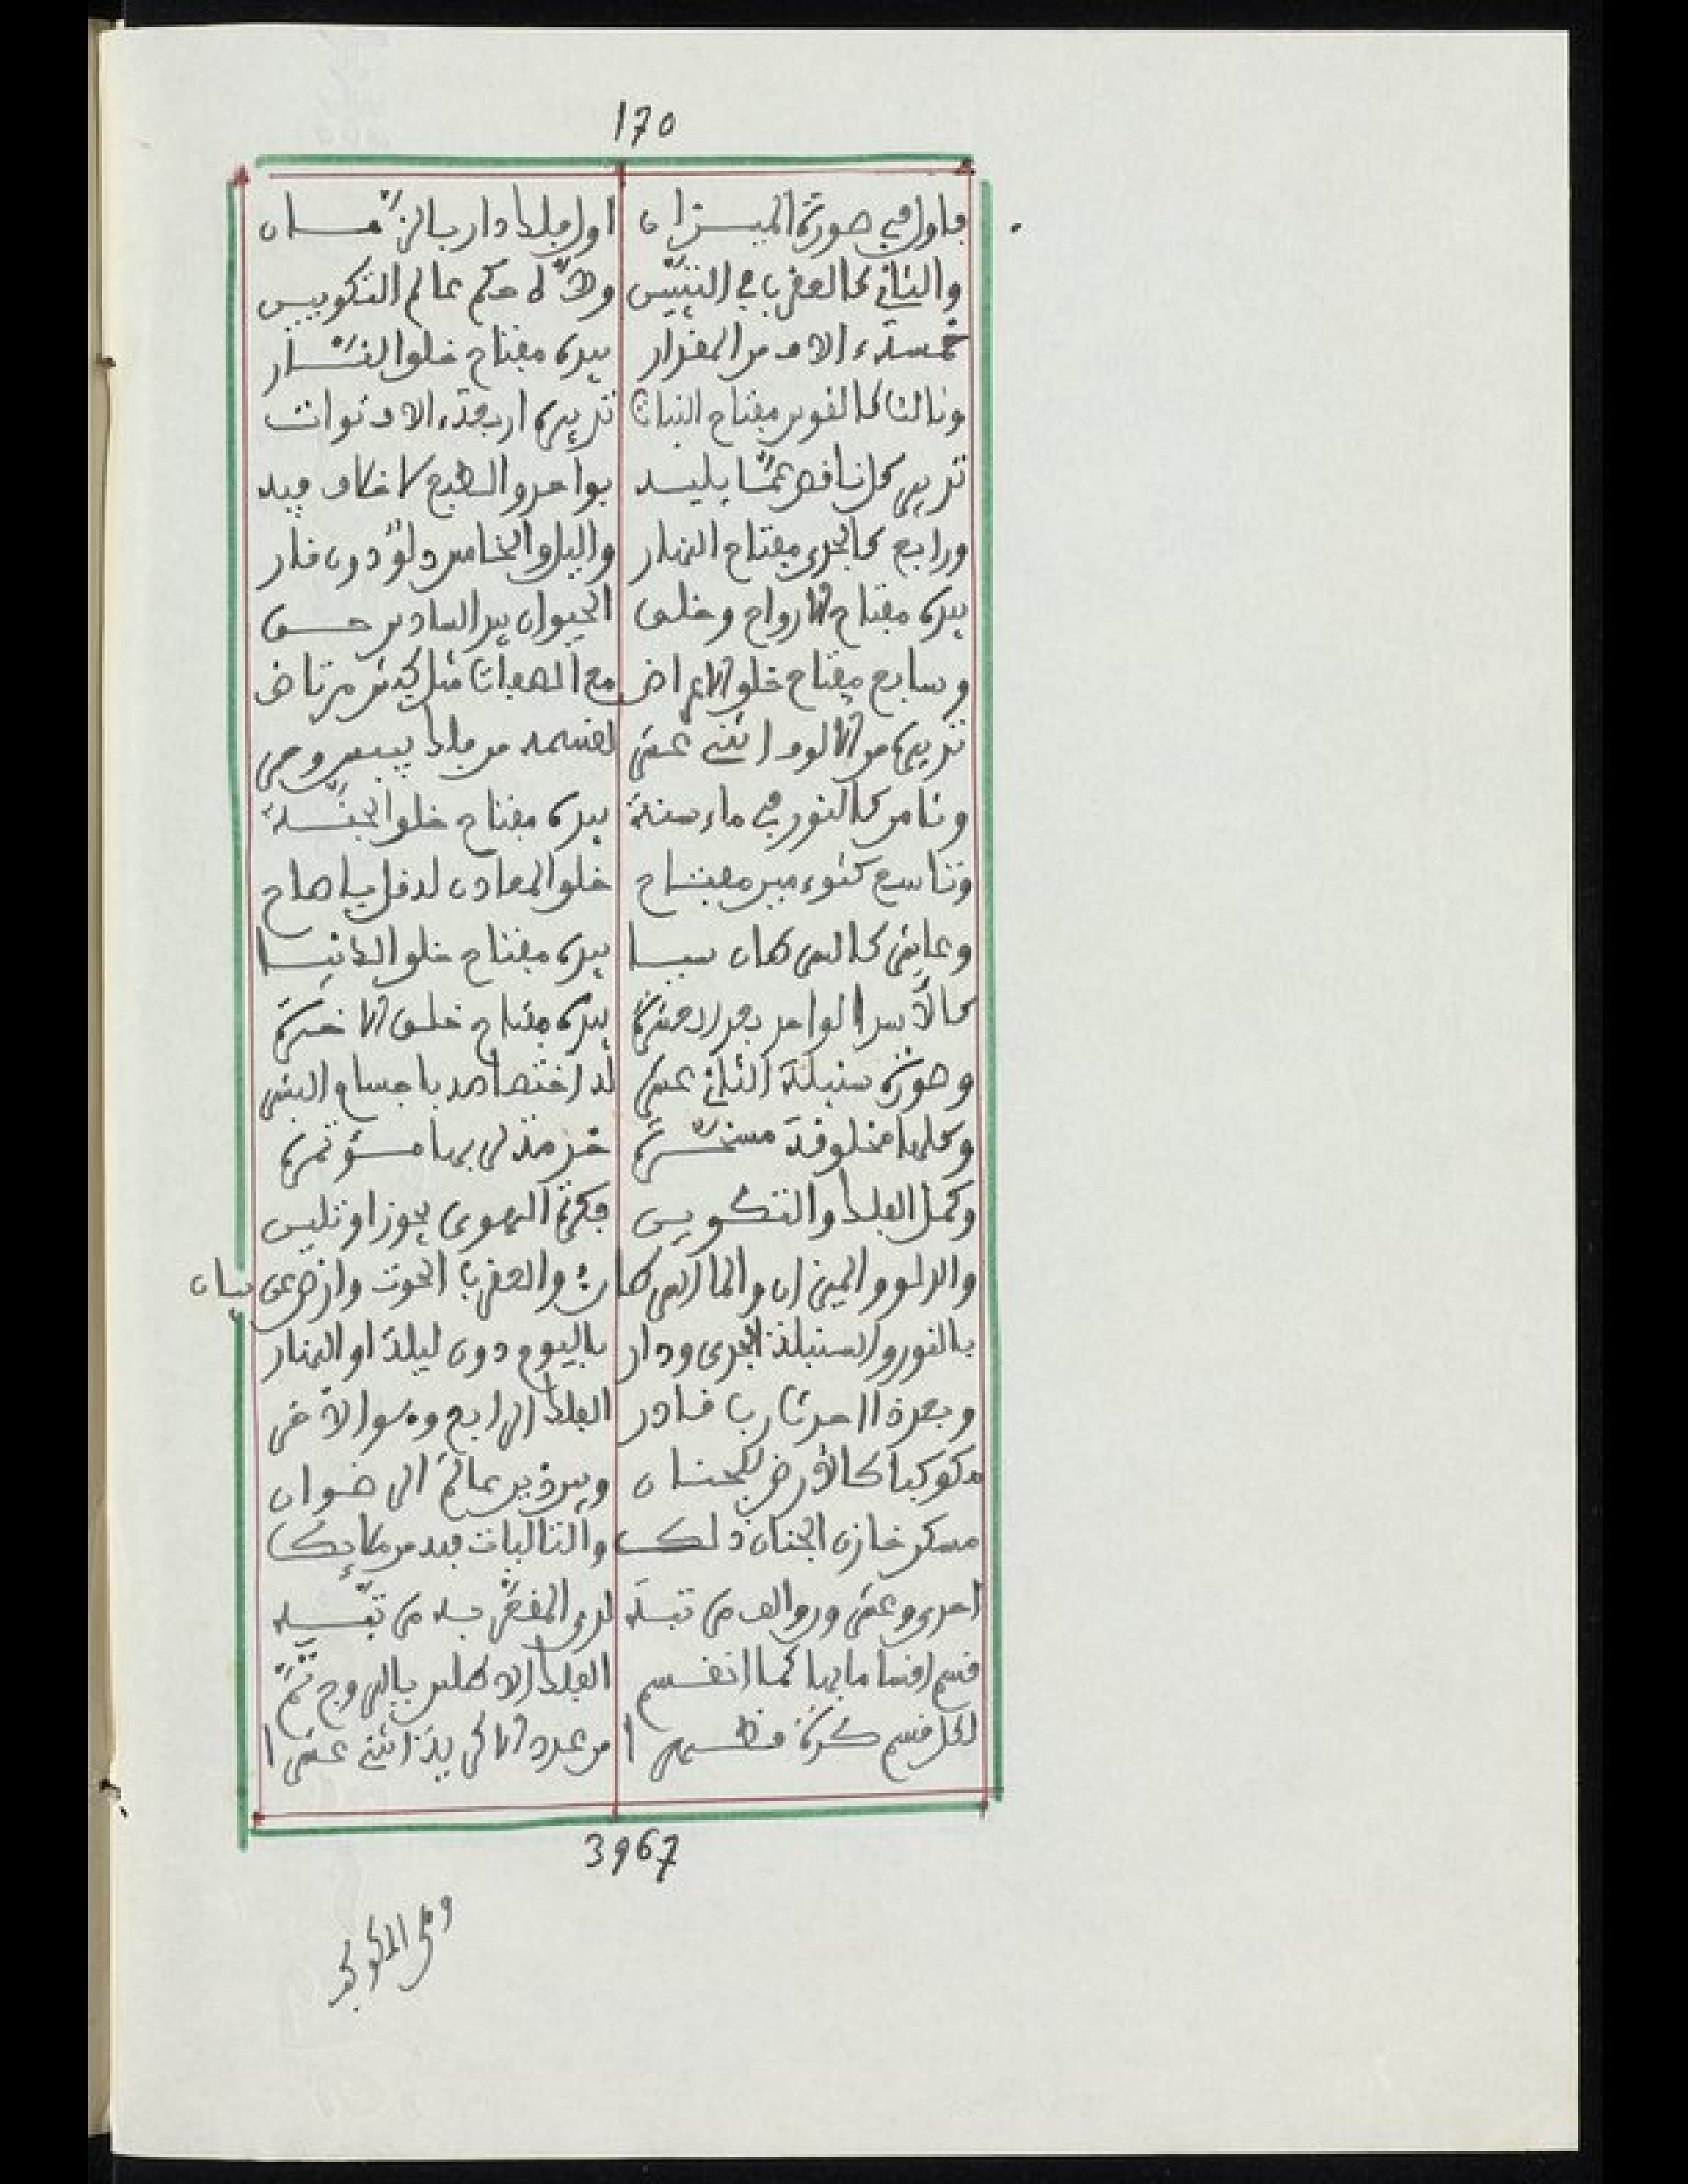 170
فاول في صورة الميزان اول فلك دار بالزمان
والثاني كالعقرب في التبيين ولاه حكم عالم التكوين
خمسة ءالاف من المقدار بيده مفتاح خلق النار
وثالث كالقوس مفتاح النبات تدبيره اربعة ءالاف توات
تدبير كل ناقص عما يليه بواحد والطبع لا خلاف فيه
ورابع كالجدي مفتاح النهار والليل والخامس دلو درن فار
بيده مفتاح الارواح وخلق الحيوان بيد السادس حق
وسابع مفتاح خلق الاعراض مع الصفات مثل كبش مرتاض
تدبيره من الالوف اثني عشر لقسمه من فلك
وثامن كالثور في ماء سنة بيده مفتاح خلق الجنة
وتاسع كتوءمين مفتاح خلق المعادن له قل يا صاح
وعاشر كالسرطان سيا بيده مفتاح خلق الدنيا
كالاسد الواحد بعد العشرة بيده مفتاح خلق الاخرة
وصورة سنبلة الثاني عشر له اختصاصه باجسام البشر
وكلها مخلوقة مسخرة خدمة لربها مؤتمرة
وكمل الفلك والتكوين فكرة الهوى بجوزا وتليين
والدلو والميزان والما السرطان والعقرب الحوت وارض عن بيان
بالثور والسنبلة الجدي ودار باليوم دون ليلة او النهار
وبعد ذا احدث رب قادر الفلك الرابع وهو الآخر
مكوكبا كالارض للجنان وبين ذين عالم الرضوان
مسكن خازن الجنان ذلك والتاليات فيه من ملائك
احدى وعشر والف من تبة لدى المقعر به من تيه
قسم اقساما بها كما انقسم الفلك الاطلس بالبروج ثم
لكل قسم كرة قطرا من عدد الاكرية اثني عشرا
3967
وفي المكوكب